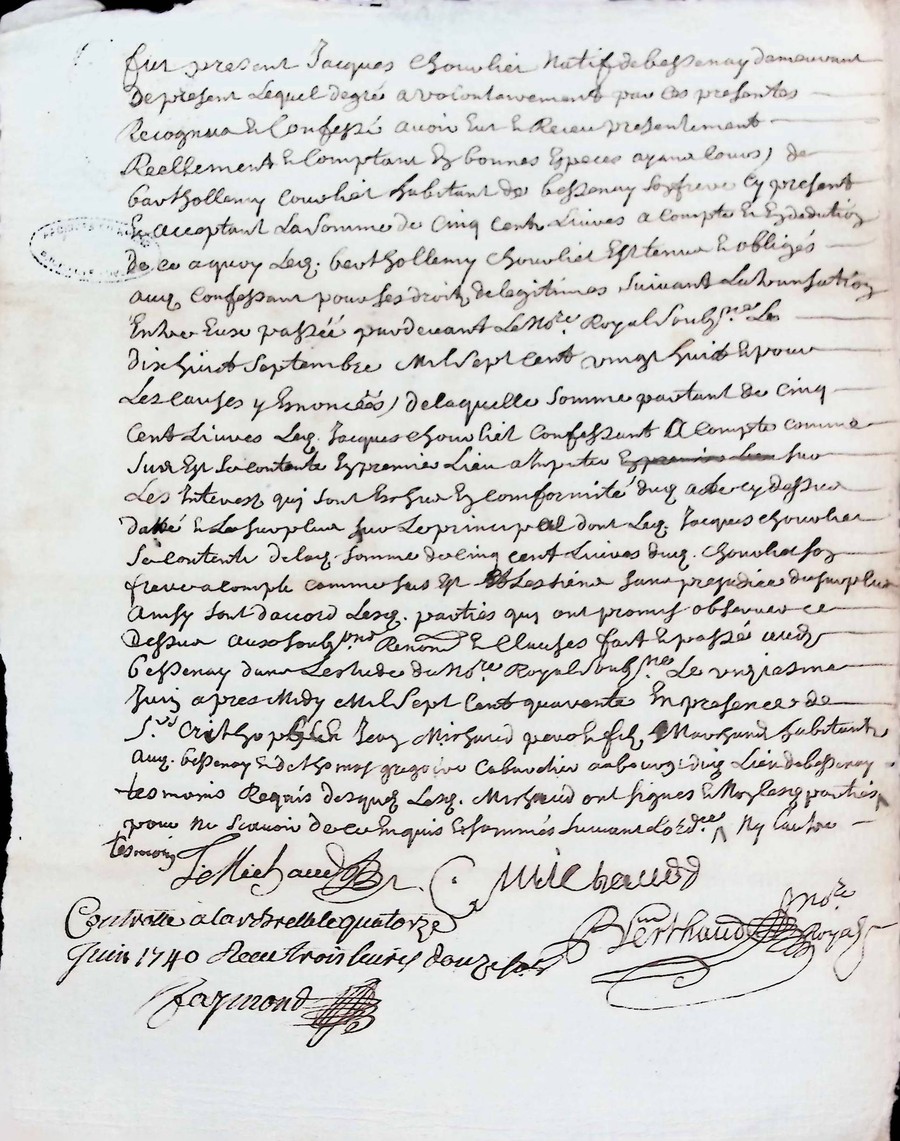 fut present Jacques Chouvliet Natif de bessenay demeurant
de present Lequel de gré a volontairement par ces presentes
Recognu et Confessé avoir Eut et Receu presentement
Reellement et Comptant En bonnes Especes ayant cours) de
barthollemy Couvliet habitant de bessenay son frere Cy present
Et acceptant La Somme de Cinq Cents Livres a Compte et En deduction
de ce a quoy Led. barthollemy Chouvliet Est tenu et obligés
aud. Confessant pour ses droits de legitimes Suivant La transaction
Entre Eux passée pardevant Le No.re Royal Soubz.né Le
dix huit Septembre Mil Sept Cent vingt huit et pour
Les Causes y Ennoncéés) de laquelle Somme partant de Cinq
Cent Livres Led. Jacques Chouvliet Confessant A Compte comme
Sur Est Se contente En premier Lieu a Imputer En premier Lieu sur
Les Interest qui sont Escheu En Conformité dud. acte cy dessus
datté et Le surplus sur Le principal dont Led. Jacques Chouvliet
Se contente de lad. somme de Cinq cent Livres dud. Chouvliet son
frere a compte comme sus Est Et Les tiene sans prejudice du surplus
Ainsy sont d'accord Lesd. parties qui ont promis observer ce
dessus aux soub.ons Renon.ons et Clauses fait et passé aud.
bessenay dans L'estude du No.re Royal Soubz.né Le unziesme
Juin apres Midy Mil Sept Cent quarante En presence de
S.rs Cristhophle et Jean Michaud pere et fils Marchand habitants
aud. bessenay et de thomas gregoire Cabaretier au bourg dud. Lieu de bessenay
tesmoins Requis desquels Lesd. Michaud ont signes et Non Lesd. parties
pour ne Scavoir de ce Enquis et sommés Suivant L'ord.ce Ny L'autre
tesmoin
J. Michaud C. Michaud
Berthaud no.re Royal
Controllé a larbrelle le quatorze
Juin 1740 Receu trois livres douze sols
Faymond